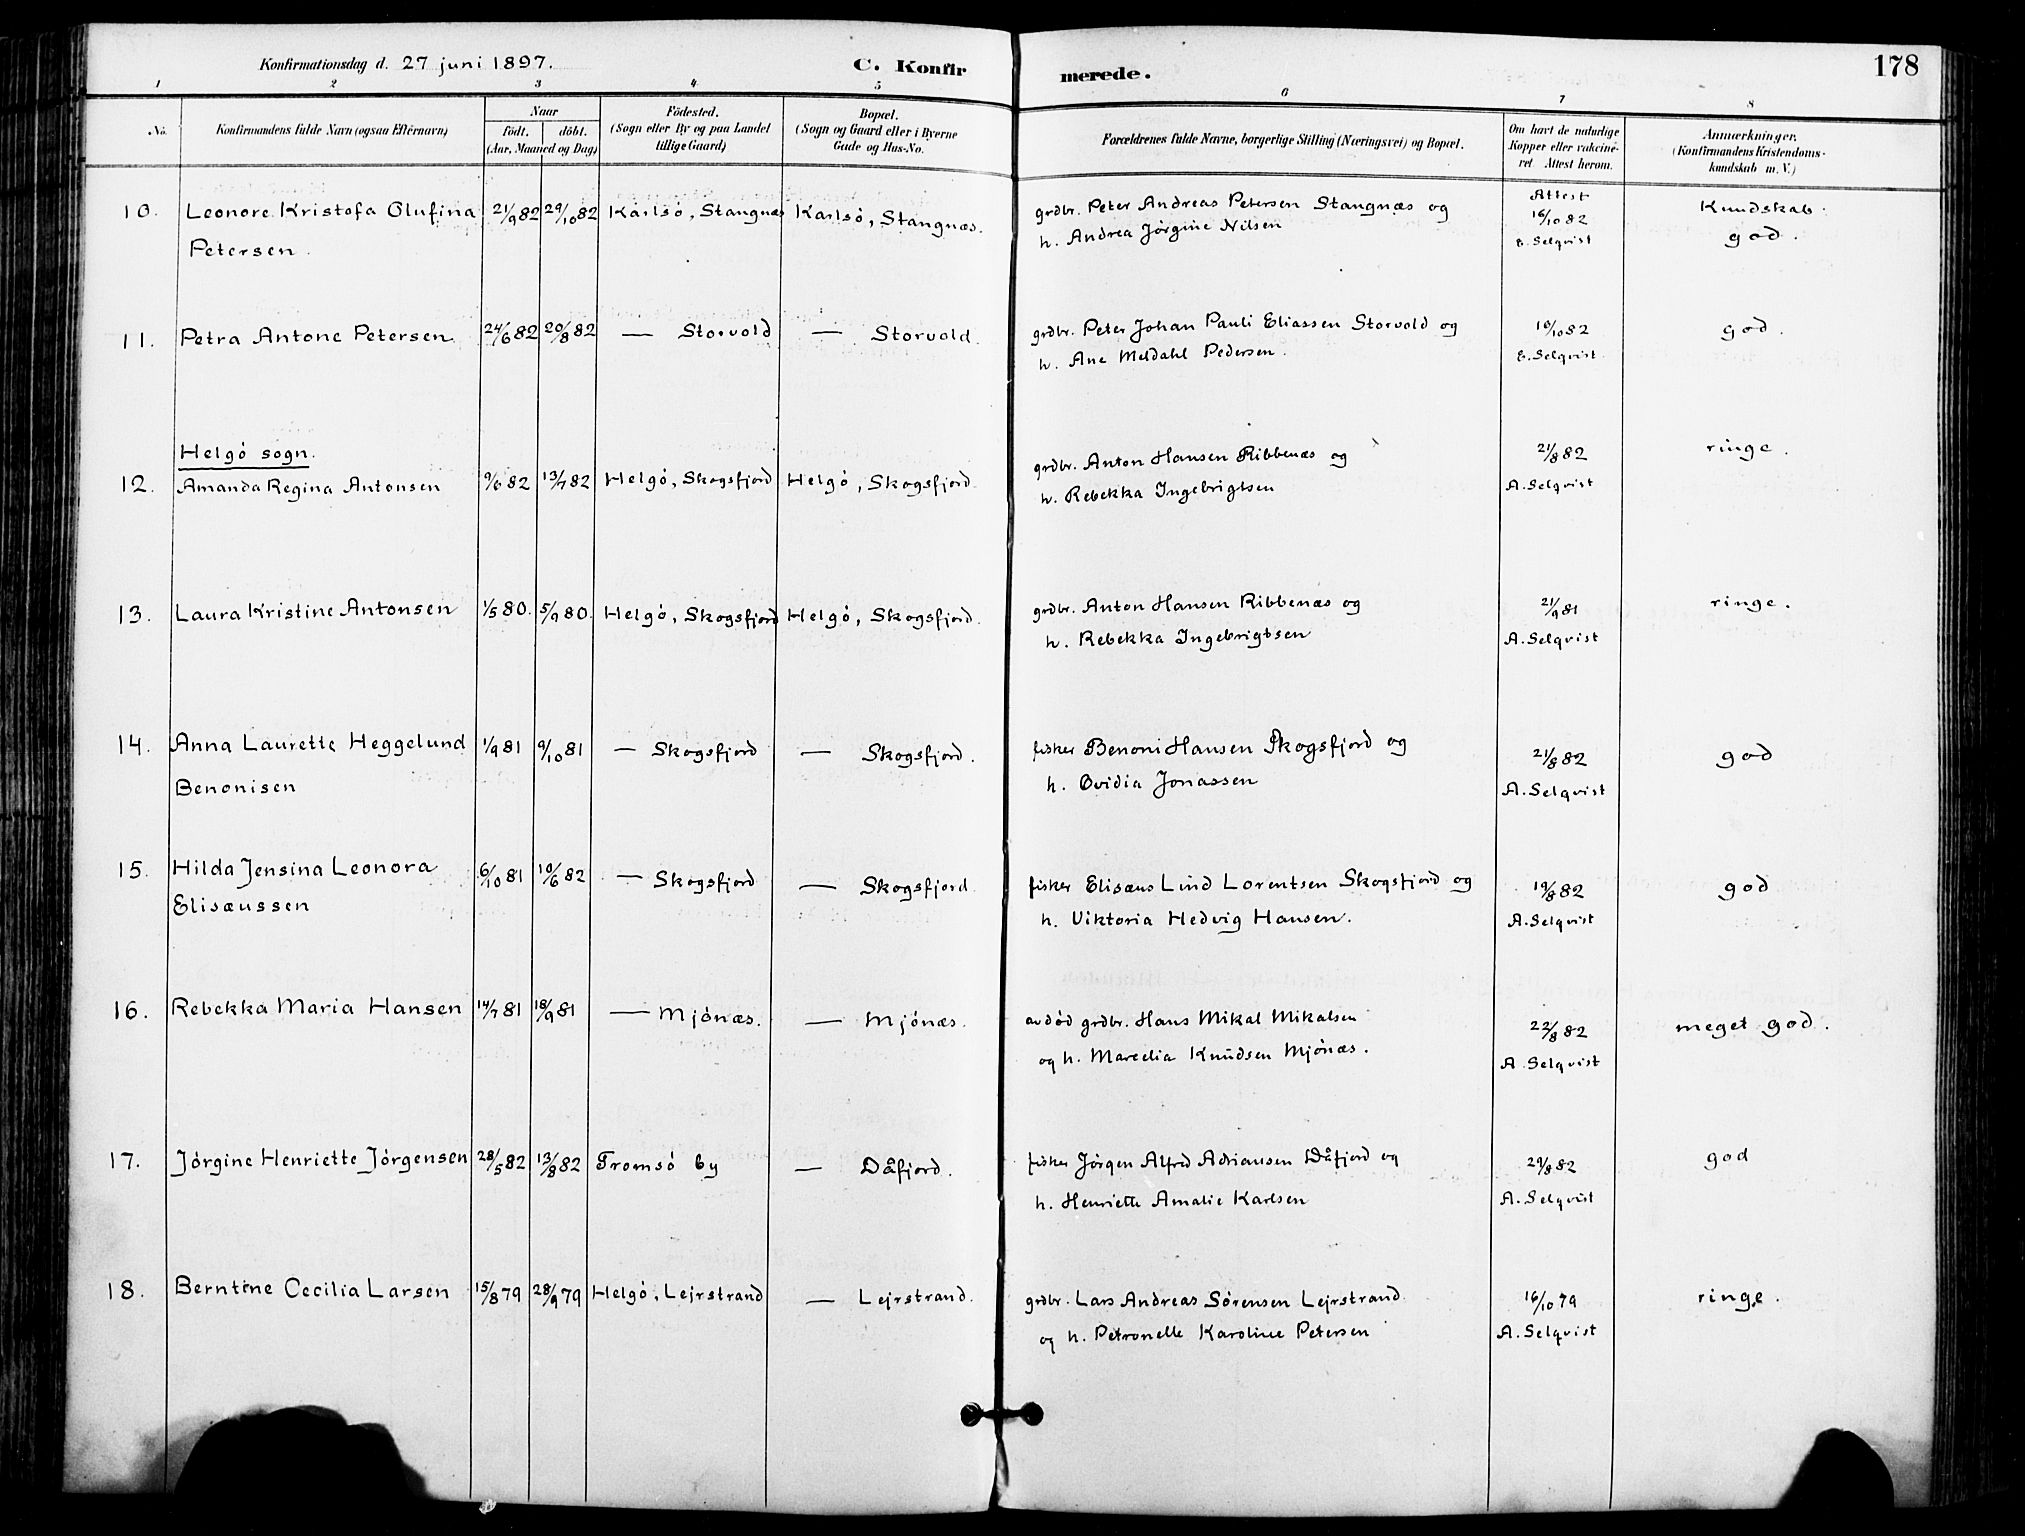 Konfirmationsdag d. 27 juni 1897.
C. Konfirmerede.
178
1 2 3 4 5 6 7 8
No.
Konfirmandens fulde Navn (ogsaa Efternavn)
Naar
födt. döbt.
(Aar, Maaned og Dag)
Födested.
(Sogn eller By og paa Landet
tillige Gaard)
Bopæl.
(Sogn og Gaard eller i Byerne
Gade og Hus-No.
Forældrenes fulde Navne, borgerlige Stilling (Næringsvei) og Bopæl.
Om havt de naturlige
Kopper eller vakcine-
ret. Attest herom.
Anmærkninger.
(Konfirmandens Kristendoms-
kundskab m. V.)
10. Leonore Kristofa Olufina 21/9 82 29/10 82 Karlsö, Stangnæs Karlsö, Stangnæs. grdbr. Peter Andreas Petersen Stangnæs og Attest 16/10 82 Kundskab
Petersen. h. Andrea Jörgine Nilsen E. Selqvist god.
11. Petra Antone Petersen 24/6 82 20/8 82 — Storvold — Storvold. grdbr. Peter Johan Pauli Eliassen Storvold og 16/10 82 god.
h. Ane Meldahl Pedersen. E. Selqvist.
Helgö sogn.
12. Amanda Regina Antonsen 9/6 82 13/7 82 Helgö, Skogsfjord Helgö, Skogsfjord. grdbr. Anton Hansen Ribbenæs og 21/8 82 ringe.
h. Rebekka Ingebrigtsen A. Selqvist
13. Laura Kristine Antonsen 1/5 80. 5/9 80. Helgö, Skogsfjord Helgö, Skogsfjord. grdbr. Anton Hansen Ribbenæs og 21/9 81 ringe.
h. Rebekka Ingebrigtsen A. Selqvist
14. Anna Laurette Heggelund 1/9 81 9/10 81 — Skogsfjord — Skogsfjord. fisker Benoni Hansen Skogsfjord og 21/8 82 god
Benonisen h. Ovidia Jonassen A. Selqvist
15. Hilda Jensina Leonora 6/10 81 10/6 82 — Skogsfjord — Skogsfjord fisker Elisæus Lind Lorentsen Skogsfjord og 19/8 82 god
Elisæussen h. Viktoria Hedvig Hansen. A. Selqvist
16. Rebekka Maria Hansen 14/7 81 18/9 81 — Mjönæs. — Mjönæs. avdöd grdbr. Hans Mikal Mikalsen 22/8 82 meget god.
og h. Marcelia Knudsen Mjönæs. A. Selqvist
17. Jörgine Henriette Jörgensen 28/5 82 13/8 82 Tromsö by — Dåfjord. fisker Jörgen Alfred Adriansen Dåfjord og 29/8 82 god
h. Henriette Amalie Karlsen A. Selqvist
18. Berntine Cecilia Larsen 15/8 79 28/9 79 Helgö, Lejrstrand — Lejrstrand. grdbr. Lars Andreas Sörensen Lejrstrand 16/10 79 ringe.
og h. Petronelle Karoline Petersen A. Selqvist